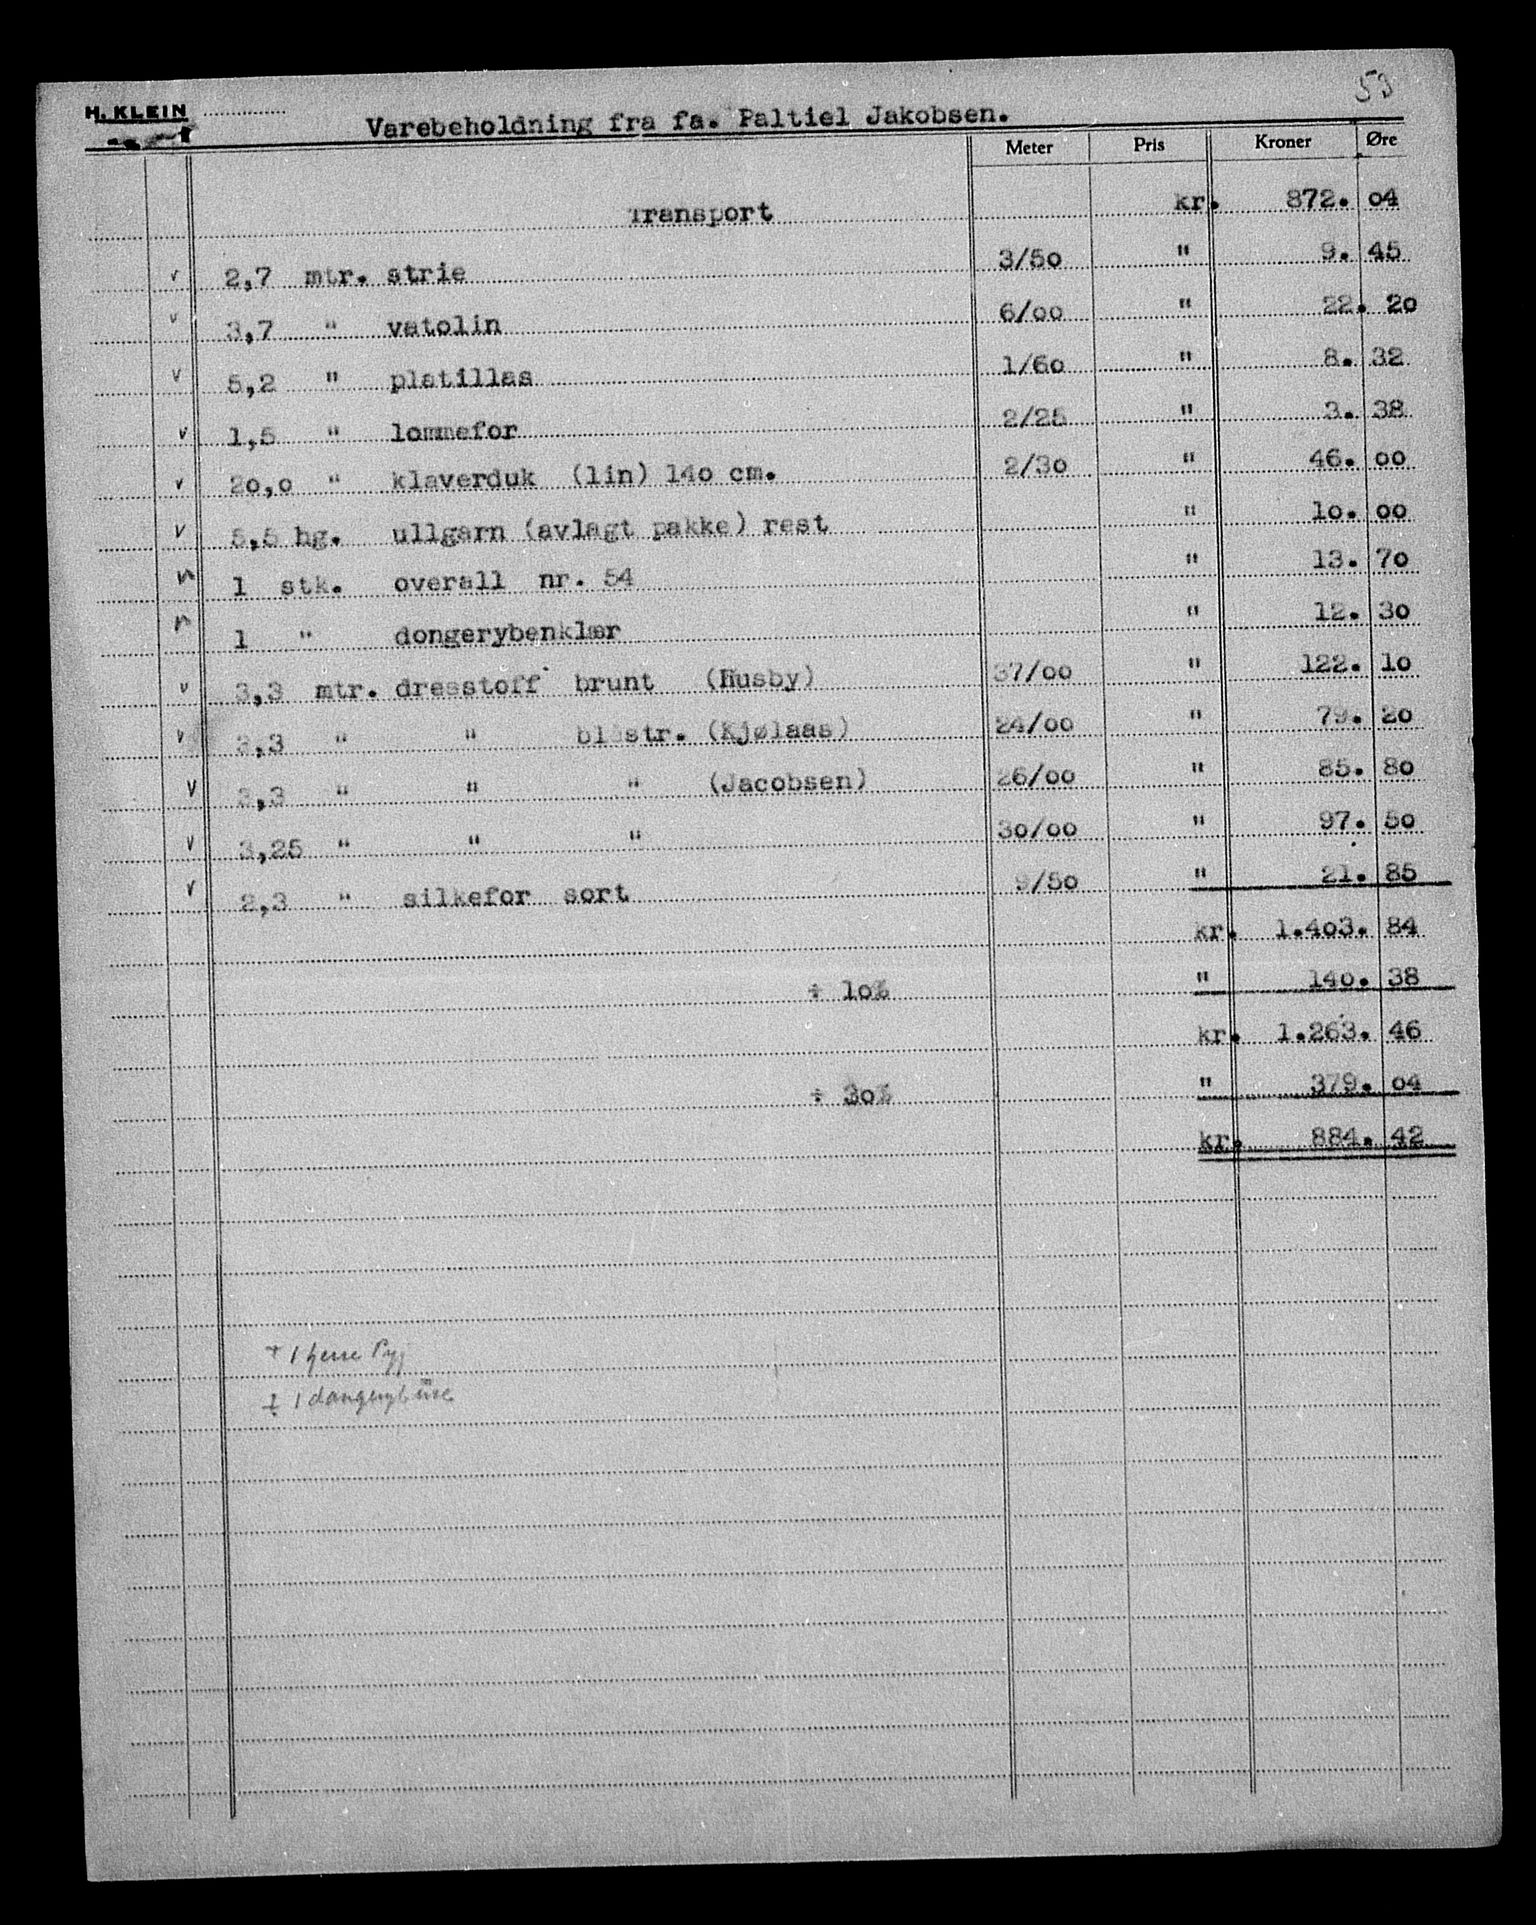 53
H. KLEIN
Varebeholdning fra fa. Paltiel Jakobsen.
Meter Pris Kroner Øre
Transport kr. 872. 04
v 2,7 mtr. strie 3/50 " 9. 45
v 3,7 " vatolin 6/00 " 22. 20
v 5,2 " platillas 1/60 " 8. 32
v 1,5 " lommefor 2/25 " 3. 38
v 20,0 " klaverduk (lin) 140 cm. 2/30 " 46. 00
v 5,5 hg. ullgarn (avlagt pakke) rest " 10. 00
1 stk. overall nr. 54 " 13. 70
1 " dongerybenklær " 12. 30
v 3,3 mtr. dresstoff brunt (Husby) 37/00 " 122. 10
v 3,3 " " blåstr. (Kjølaas) 24/00 " 79. 20
v 3,3 " " " (Jacobsen) 26/00 " 85. 80
v 3,25 " " " 30/00 " 97. 50
v 2,3 " silkefor sort 9/50 " 21. 85
kr. 1.403. 84
÷ 10% " 140. 38
kr. 1.263. 46
÷ 30% " 379. 04
kr. 884. 42
+ 1 herre Pyj
1